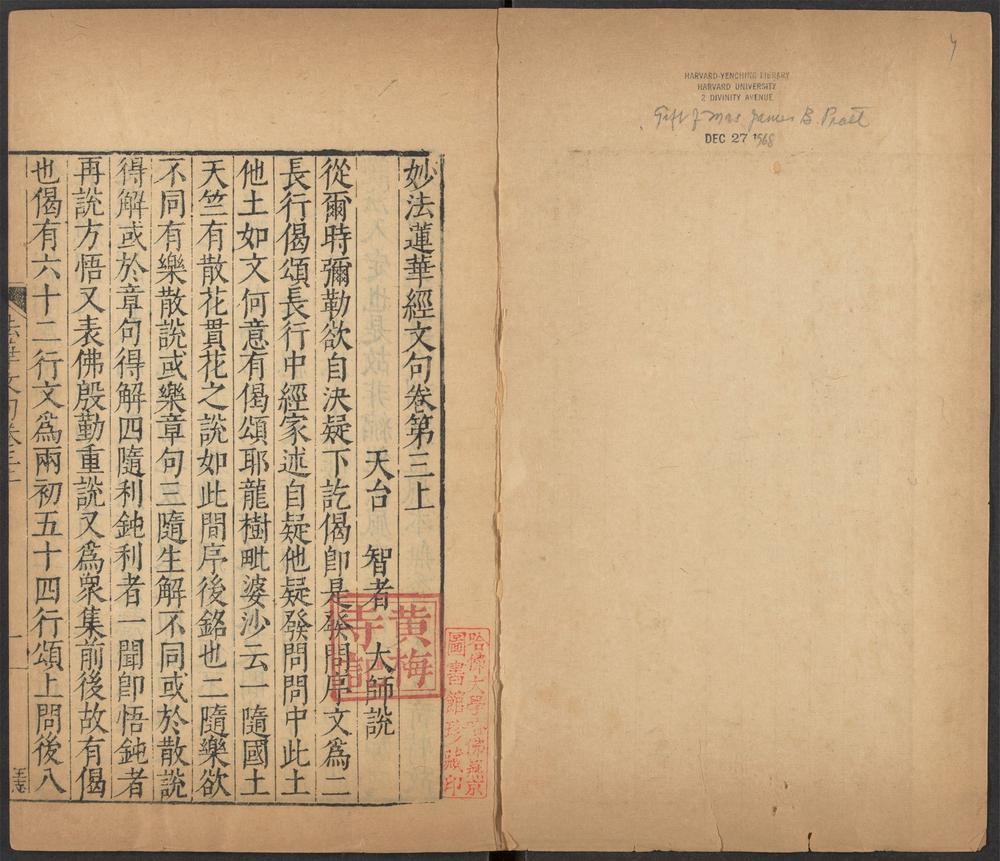 HARVARD-YENCHING LIBRARY
HARVARD UNIVERSITY
2 DIVINITY AVENUE
Gift of Mrs James B. Pratt
DEC 27 1968
哈佛大學哈佛燕京
圖書館珍藏印
黄梅
寺
妙法蓮華經文句卷第三上
天台 智者 大師 說
從爾時彌勒欲自決疑下訖偈卽是發問序文爲二
長行偈頌長行中經家述自疑他疑發問問中此土
他土如文何意有偈頌耶龍樹毗婆沙云一隨國土
天竺有散花貫花之說如此間序後銘也二隨樂欲
不同有樂散說或樂章句三隨生解不同或於散說
得解或於章句得解四隨利鈍利者一聞卽悟鈍者
再說方悟又表佛殷勤重說又爲衆集前後故有偈
也偈有六十二行文爲兩初五十四行頌上問後八
法華文句卷三上
一